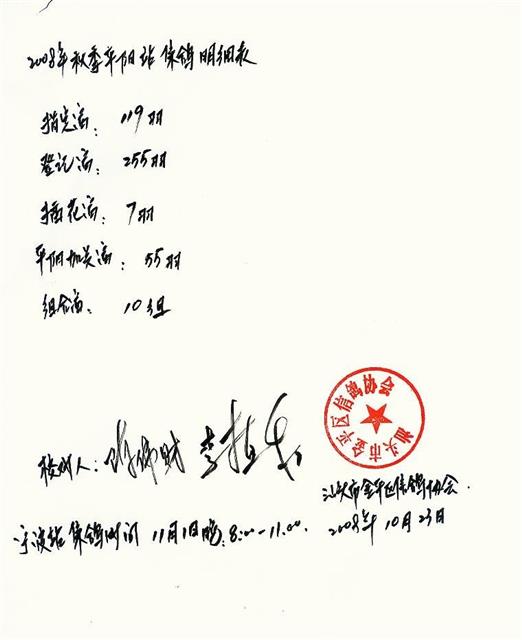 2008年秋季平阳站集鸽明细表
指定鸽: 119羽
登记鸽: 255羽
插花鸽: 7羽
平阳加关鸽: 55羽
组合鸽: 10组
汕头市金平区信鸽协会
校对人:
汕头市金平区信鸽协会.
2008年10月23日
宁波站集鸽时间 11月1日晚: 8:00-11:00.